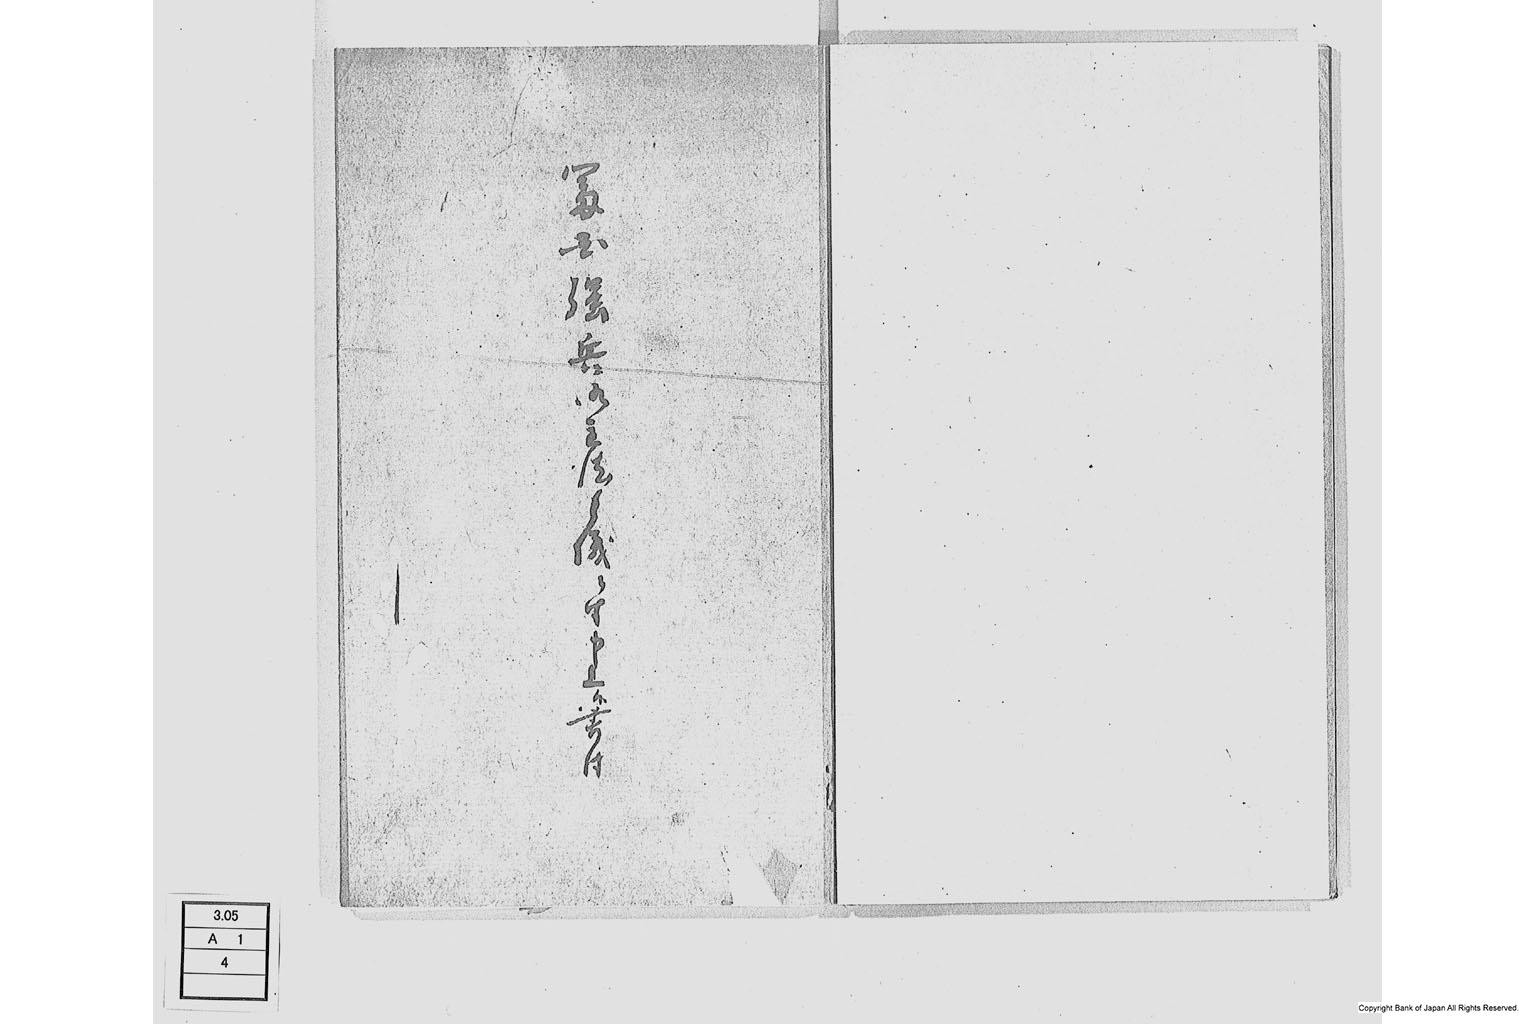 富国強兵御主法之儀ニ付申上候書付
3.05
A 1
4
Copyright Bank of Japan All Rights Reserved.